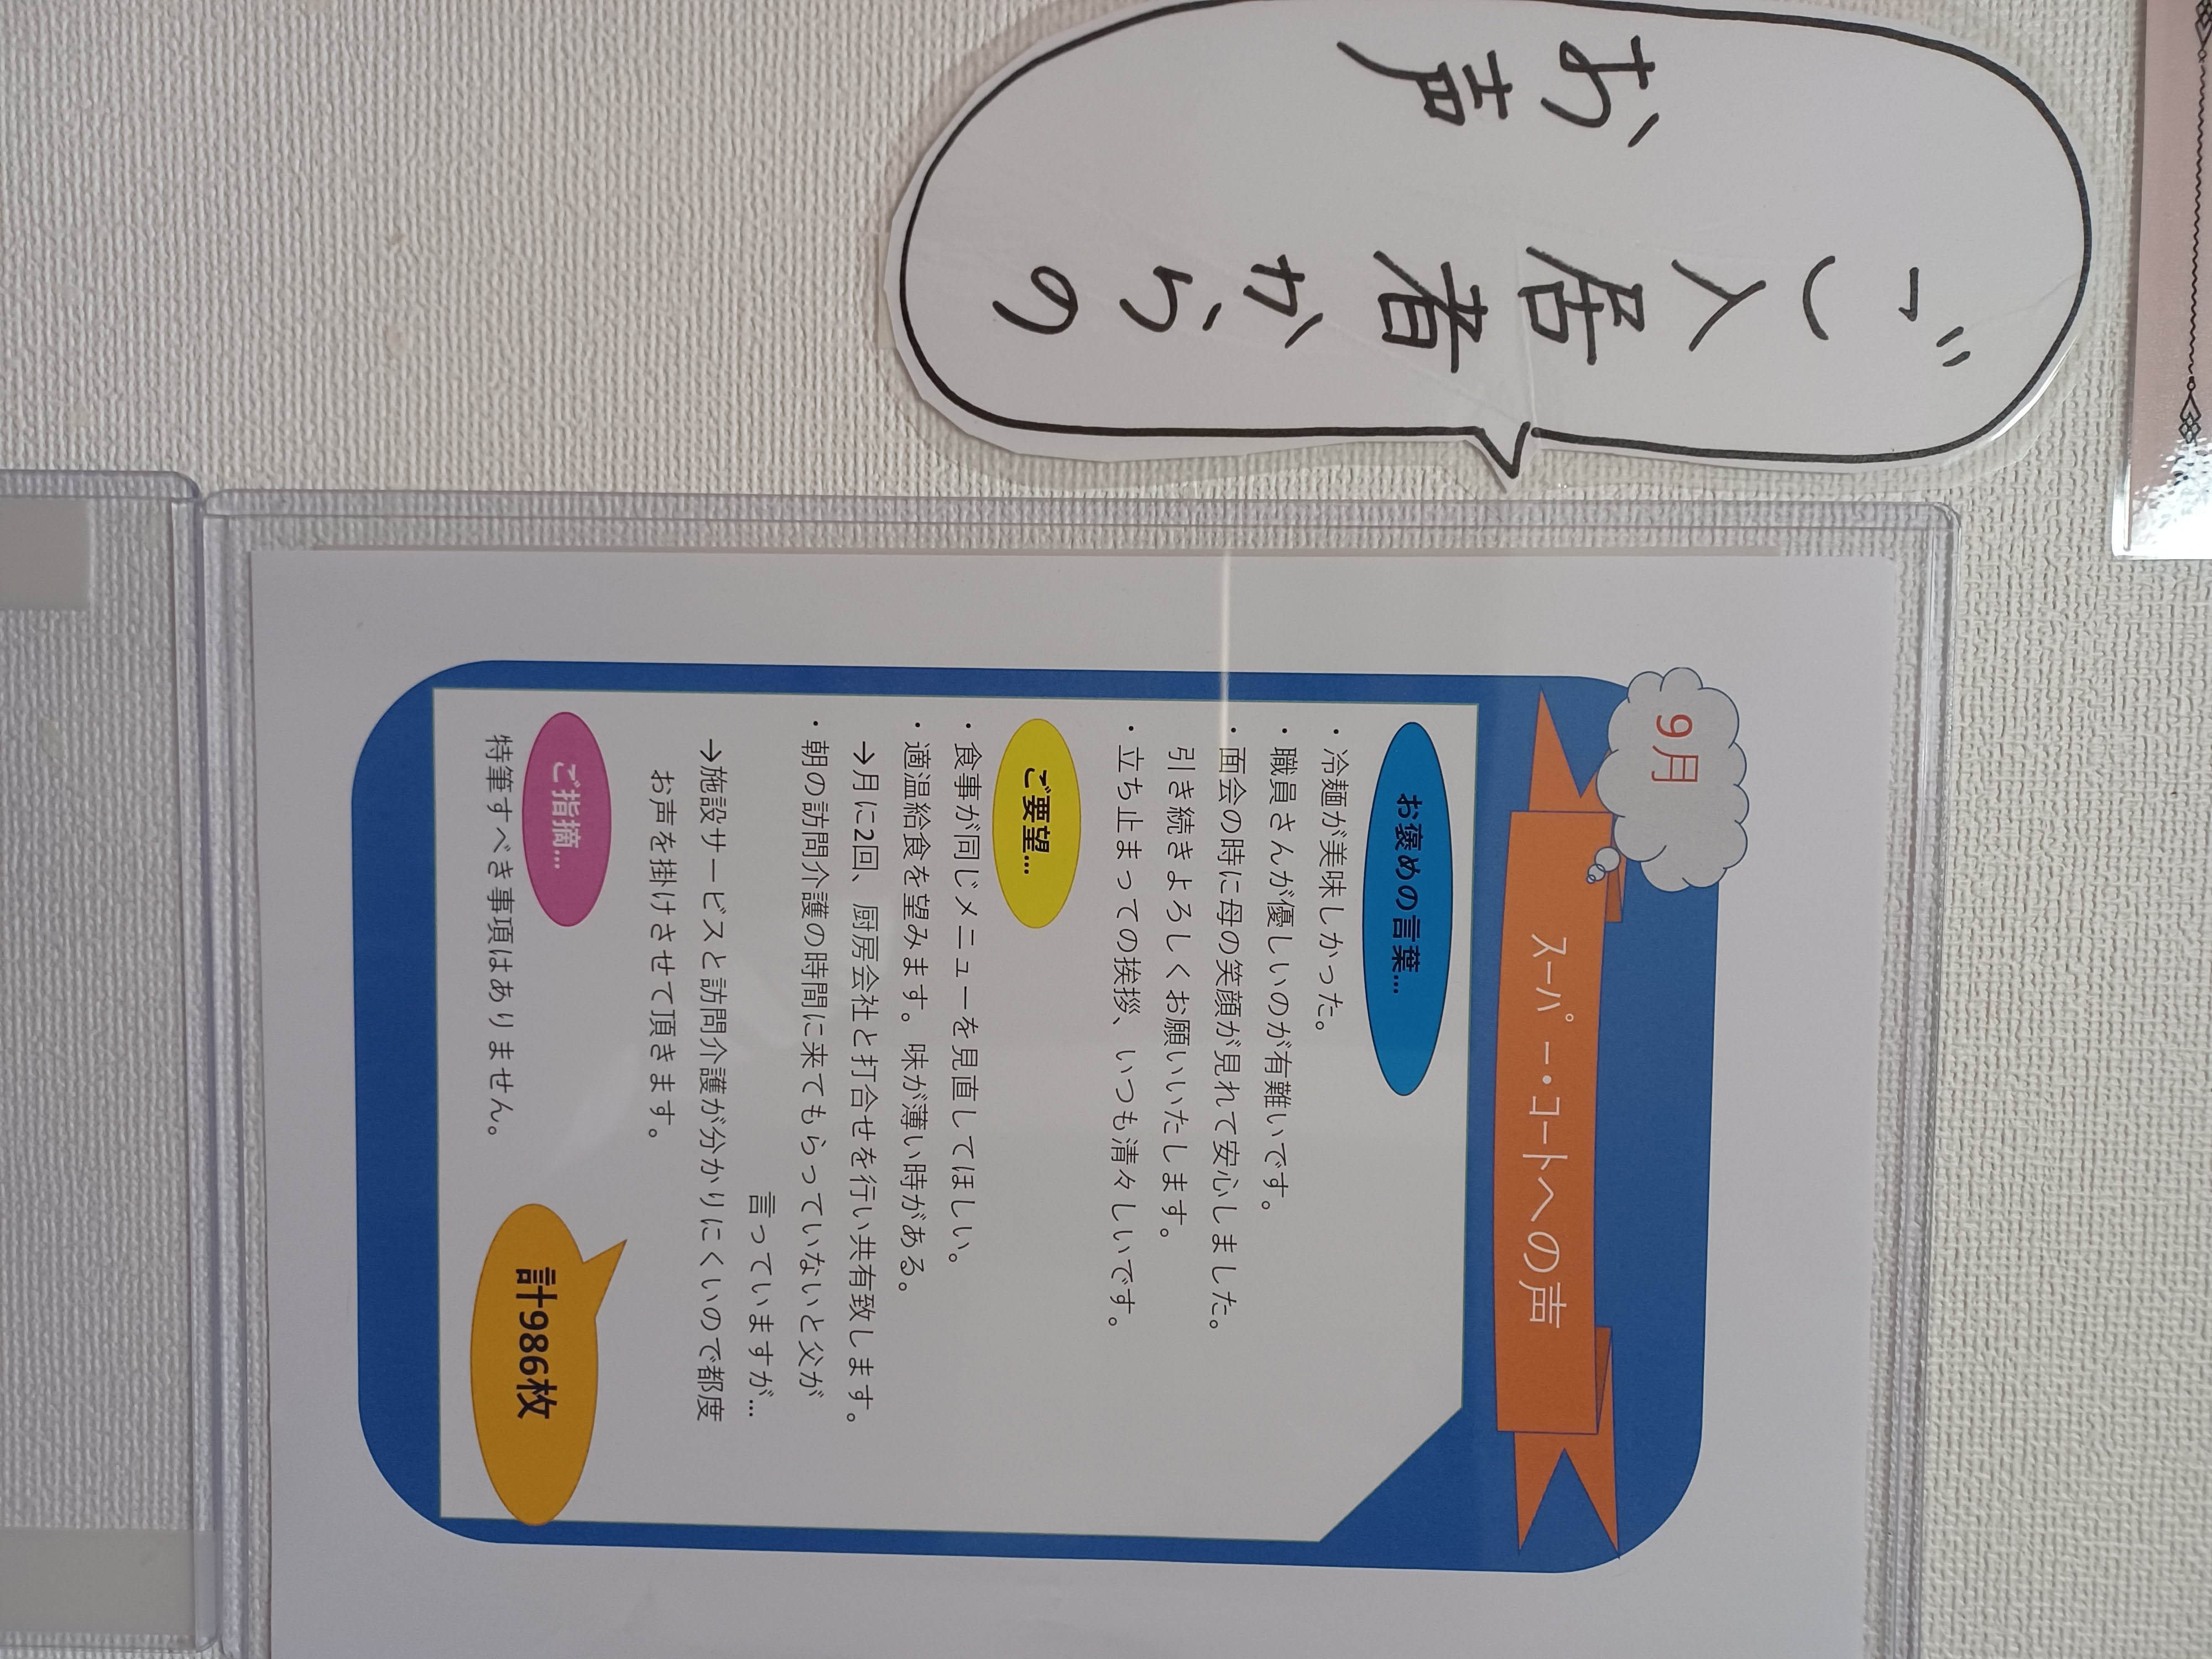 ご入居者からの
お声
9月
スーパー・コートへの声
お褒めの言葉…
・冷麺が美味しかった。
・職員さんが優しいのが有難いです。
・面会の時に母の笑顔が見れて安心しました。
引き続きよろしくお願いいたします。
・立ち止まっての挨拶、いつも清々しいです。
ご要望…
・食事が同じメニューを見直してほしい。
・適温給食を望みます。味が薄い時がある。
→月に2回、厨房会社と打合せを行い共有致します。
・朝の訪問介護の時間に来てもらっていないと父が
言っていますが…
→施設サービスと訪問介護が分かりにくいので都度
お声を掛けさせて頂きます。
ご指摘…
特筆すべき事項はありません。
計986枚